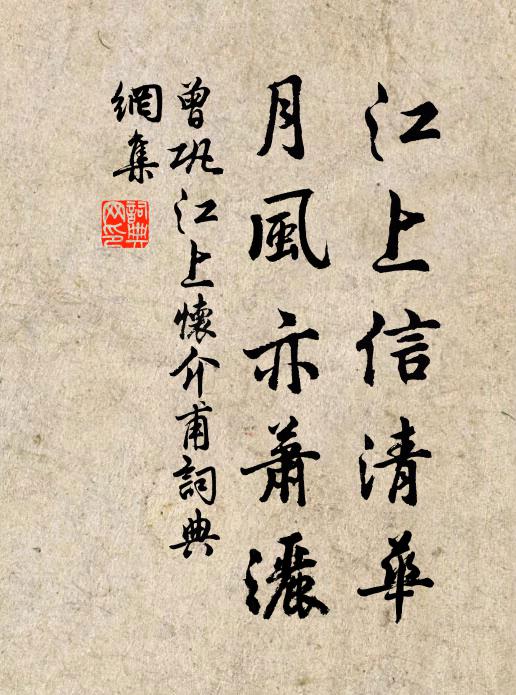 江上信清華
月風亦蕭灑
曾巩江上懷介甫詞典
網集
詞典
网印